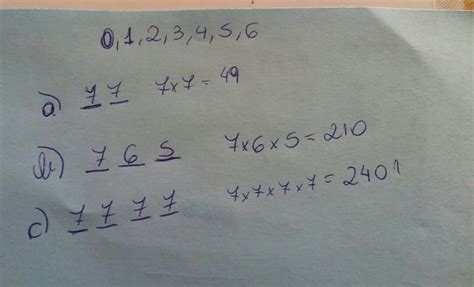 0,1,2,3,4,5,6
a) 7 7 7x7= 49
b) 7 6 5 7x6x5=210
c) 7 7 7 7 7x7x7x7=2401